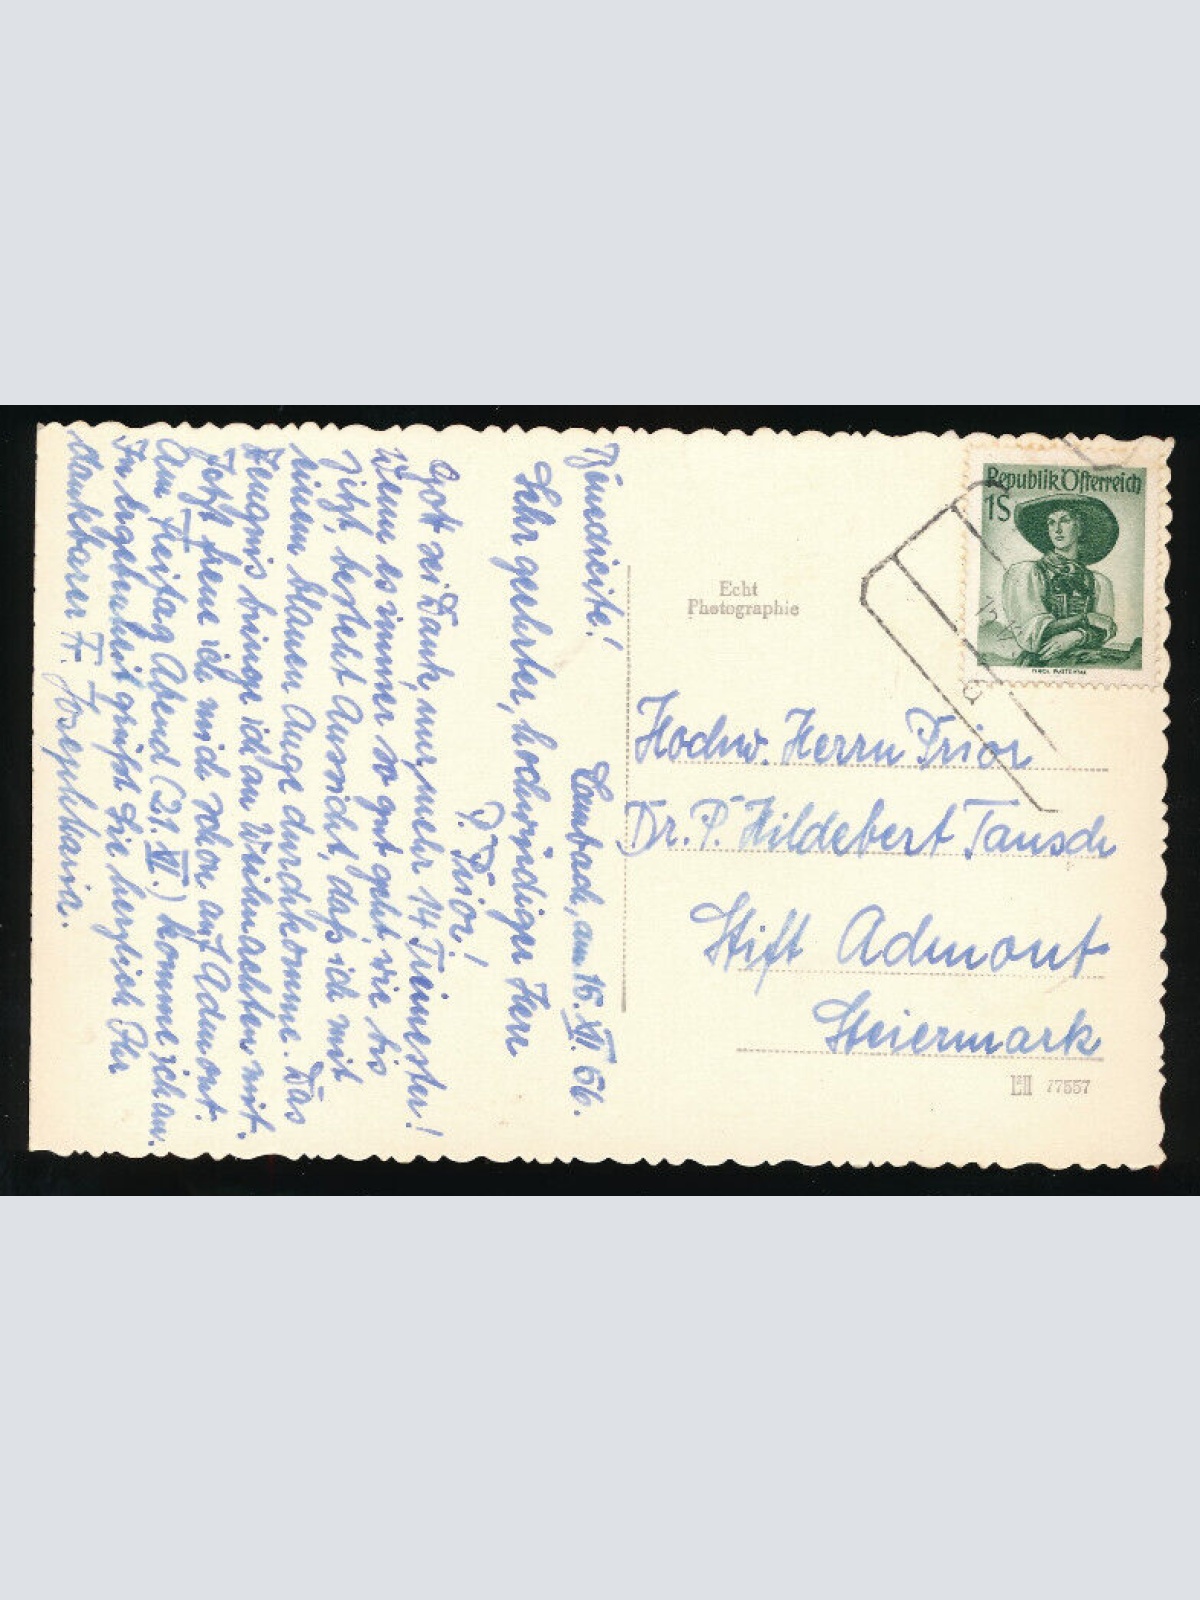 Benedicite!
Lambach, am 16. XII. 56.
Sehr geehrter, hochwürdiger Herr
P. Prior!
Gott sei Dank, nur mehr 14 Trimester!
Wenn es immer so gut geht wie bis
jetzt, besteht Aussicht, daß ich mit
einem blauen Auge durchkomme. Das
Zeugnis bringe ich an Weihnachten mit.
Jetzt freue ich mich schon auf Admont.
Am Freitag Abend (21. XII.) komme ich an.
In Ergebenheit grüßt Sie herzlich Ihr
dankbarer Fr. Josephkaria.
Echt
Photographie
Republik Österreich
1S
TIROL PUSTERTAL
Hochw. Herrn Prior
Dr. P. Hildebert Tausch
Stift Admont
Steiermark
77557